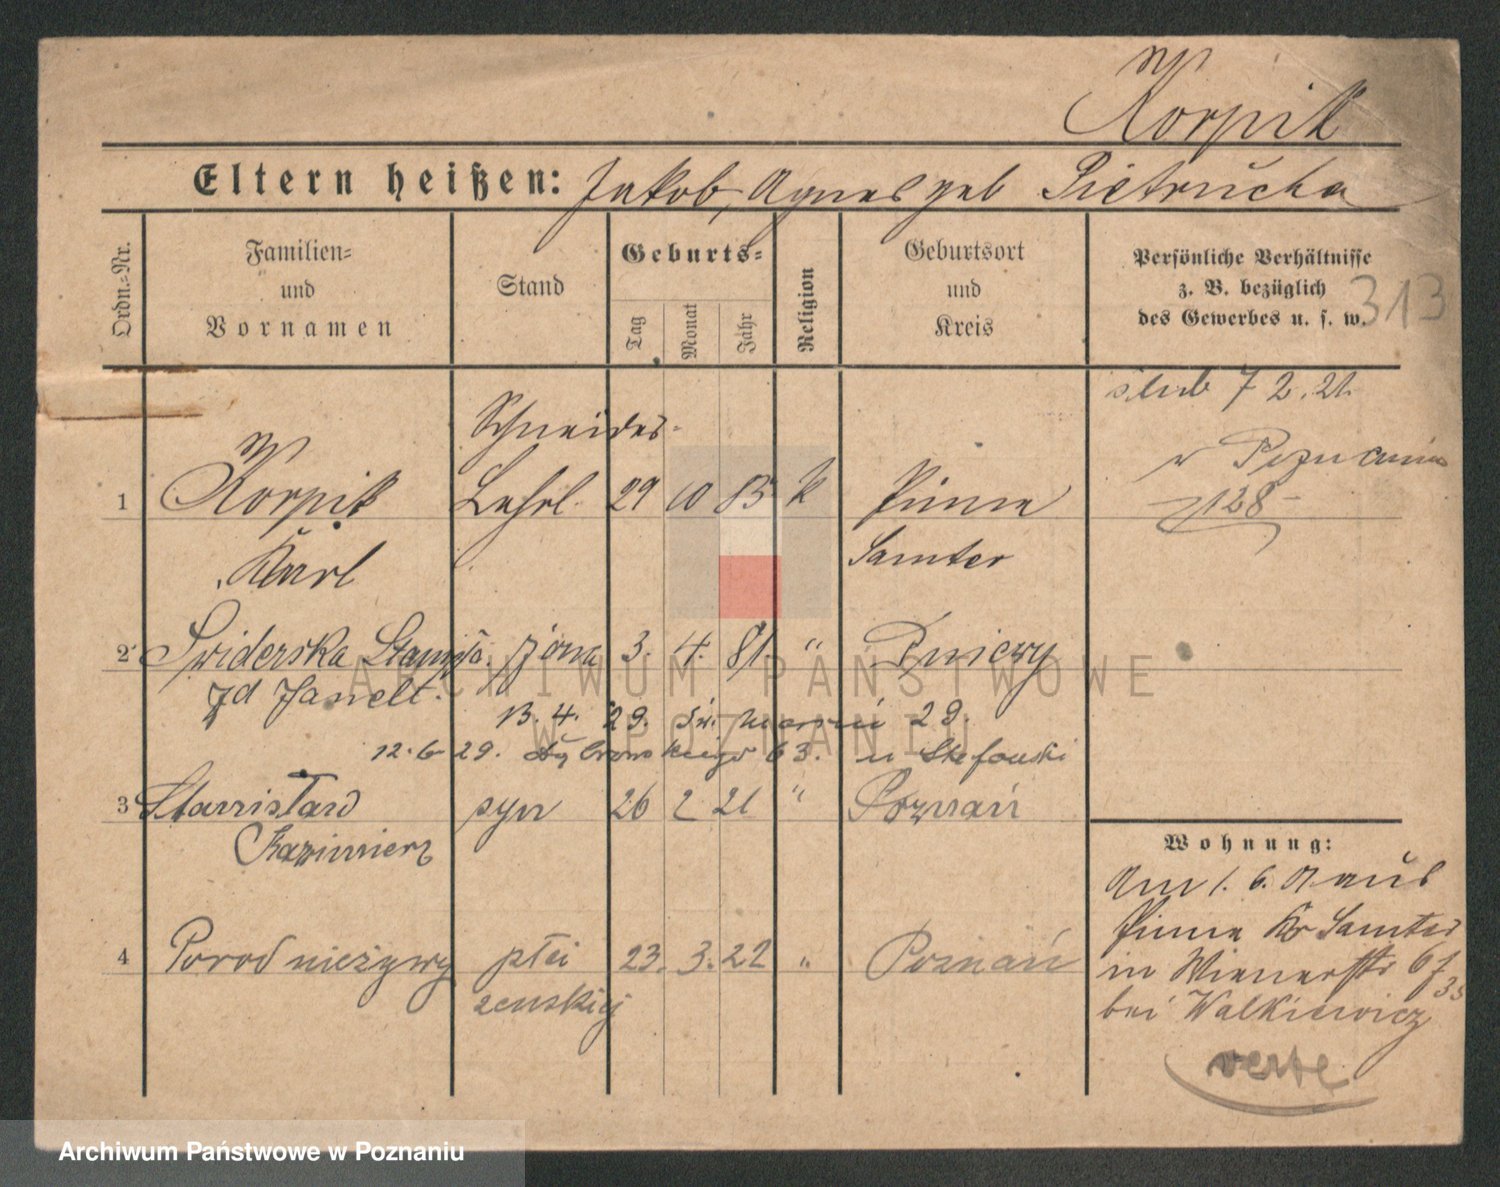 Korpik
Eltern heißen: Jakob, Agnes geb Pietrucha
Ordn.-Nr.
Familien-
und
Vornamen
Stand
Geburts-
Tag
Monat
Jahr
Religion
Geburtsort
und
Kreis
Persönliche Verhältnisse
z. B. bezüglich
des Gewerbes u. s. w.
313
ślub 7 2. 21.
w Poznaniu
128
Schneider-
1 Korpik Lehrl. 29 10 85 k Pinne
Karl Samter
2 Swiderska żona 3. 4. 81. " Pniewy
13. 4. 29. Św. Marcin 29.
12. 6 29. Dąbrowskiego 63. u Stefański
3 Stanisław syn 26 2 21 " Poznań
Kazimierz
4 Porod nieżywy płci 23. 3. 22 " Poznań
zenskiej
Wohnung:
Am 1. 6. 01 aus
Pinne Kr Samter
in Wienerstr
bei Walkiewicz
verte
ARCHIWUM PAŃSTWOWE
W POZNANIU
Archiwum Państwowe w Poznaniu